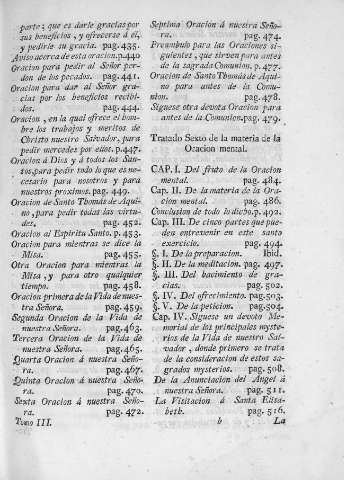 parte; que es darle gracias por
sus beneficios, y ofrecerse á él,
y pedirle su gracia. pag.435.
Aviso acerca de esta oracion.p.440
Oracion para pedir al Señor per-
don de los pecados. pag.441.
Oracion para dar al Señor gra-
cias por los beneficios recibi-
dos. pag.444.
Oracion, en la qual ofrece el hom-
bre los trabajos y meritos de
Christo nuestro Salvador, para
pedir mercedes por ellos. p.447.
Oracion á Dios y á todos los San-
tos, para pedir todo lo que es ne-
cesario para nosotros y para
nuestros proximos. pag. 449.
Oracion de Santo Thomás de Aqui-
no, para pedir todas las virtu-
des. pag. 452.
Oracion al Espiritu Santo. p.453.
Oracion para mientras se dice la
Misa. pag.455.
Otra Oracion para mientras la
Misa, y para otro qualquier
tiempo. pag.458.
Oracion primera de la Vida de nues-
tra Señora. pag.459.
Segunda Oracion de la Vida de
nuestra Señora. pag.463.
Tercera Oracion de la Vida de
nuestra Señora. pag.465.
Quarta Oracion á nuestra Seño-
ra. pag.467.
Quinta Oracion á nuestra Seño-
ra. pag.470.
Sexta Oracion á nuestra Seño-
ra. pag.472.
Tomo III.
Septima Oracion á nuestra Seño-
ra. pag.474.
Preambulo para las Oraciones si-
guientes, que sirven para antes
de la sagrada Comunion. p.477.
Oracion de Santo Thomás de Aqui-
no para antes de la Comu-
nion. pag.478.
Siguese otra devota Oracion para
antes de la Comunion.pag.479.
Tratado Sexto de la materia de la
Oracion mental.
CAP. I. Del fruto de la Oracion
mental. pag. 484.
Cap. II. De la materia de la Ora-
cion mental. pag.486.
Conclusion de todo lo dicho.p.492.
Cap. III. De cinco partes que pue-
den entrevenir en este santo
exercicio. pag. 494.
§. I. De la preparacion. Ibid.
§. II. De la meditacion. pag. 497.
§. III. Del hacimiento de gra-
cias. pag. 502.
§. IV. Del ofrecimiento. pag.503.
§. V. De la peticion. pag.504.
Cap. IV. Siguese un devoto Me-
morial de los principales myste-
rios de la Vida de nuestro Sal-
vador, donde primero se trata
de la consideracion de estos sa-
grados mysterios. pag. 508.
De la Anunciacion del Angel á
nuestra Señora. pag. 511.
La Visitacion á Santa Elisa-
beth. pag. 516.
b La